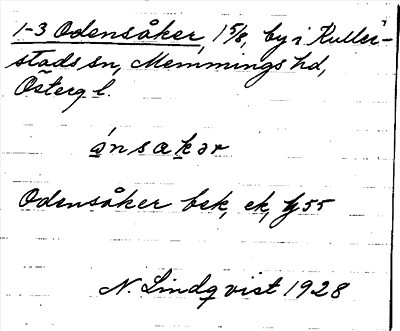 1-3 Odensåker, 1 5/8, by i Kuller-
stads sn, Memmings hd,
Österg l.
ónsakər
Odensåker bek, ek, y 55
N. Lindqvist 1928